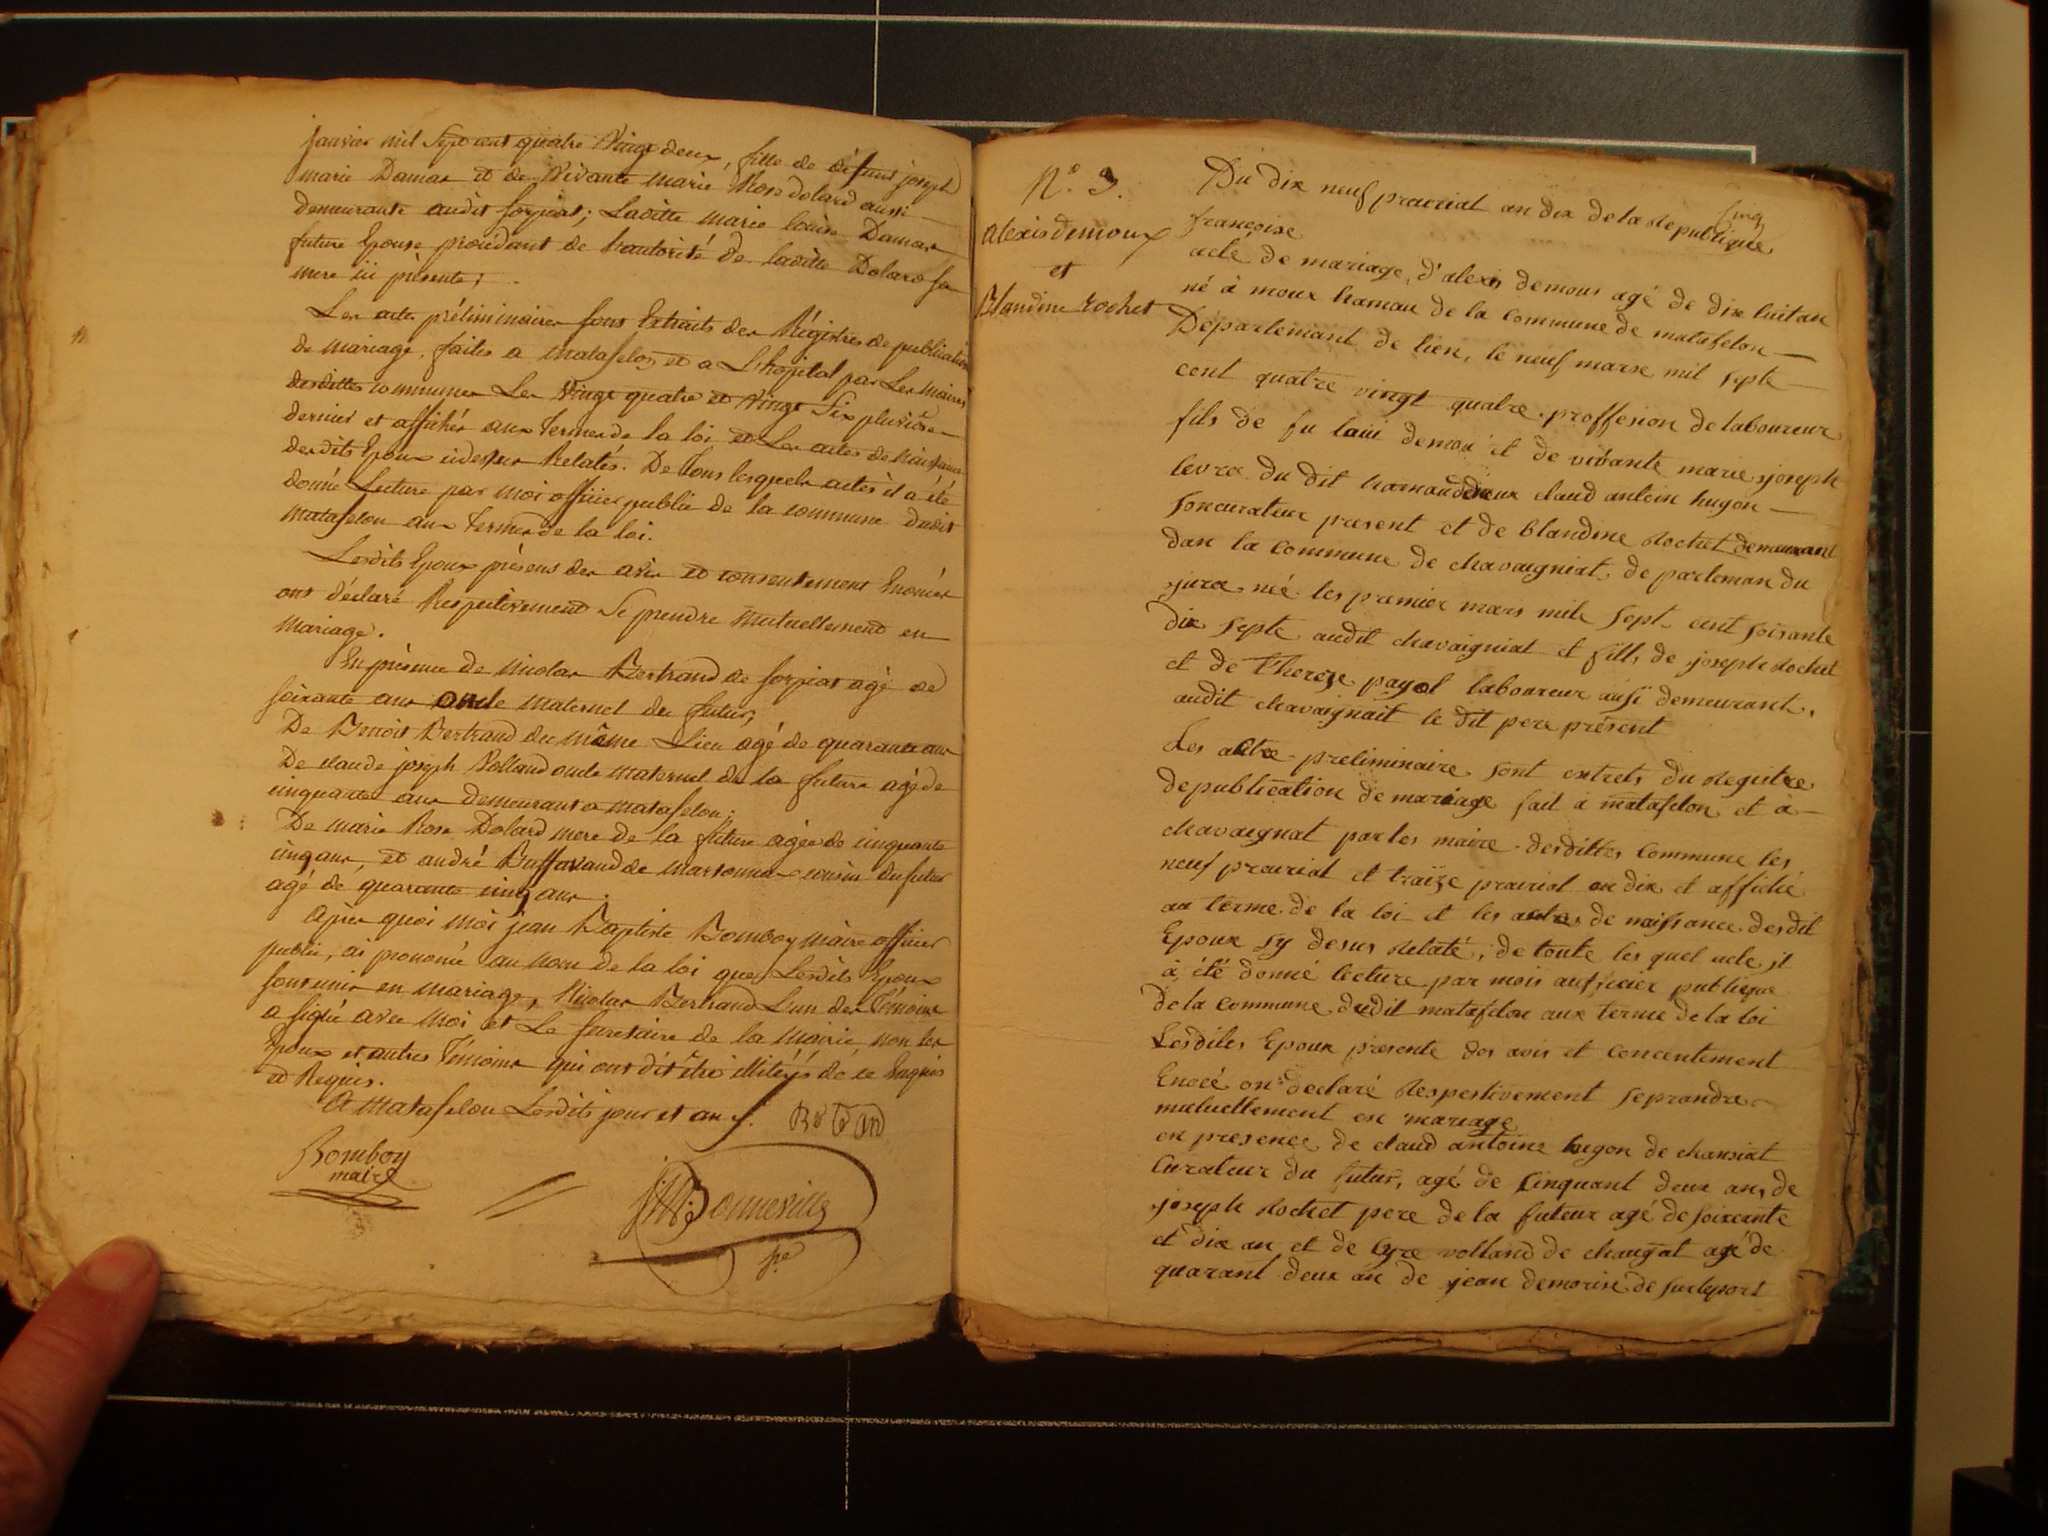 janvier mil Sept cent quatre Vingt deux, fille de défunt joseph
marie Damas et de Vivante marie Rose Dolard aussi
demeurante audit Sorpiat; Laditte marie louise Damas
future Epouse procédant de Lautorité de laditte Dolard sa
mere ici présente;
Les actes préliminaires sont Extraits des Régistres de publication
de mariage, faites a matafelon et a Lhopital par Les maires
desdittes communes Les Vingt quatre et Vingt Six pluviôse
dernier et affichés aux termes de la loi et Les actes de Naissance
desdits Epoux cidessus Relatés. De Tous lesquels actes il a été
donné Lecture par moi officier public de la commune dudit
Matafelon aux Termes de la loi.
Lesdits Epoux présens des avis et consentement Enoncés
ont déclaré Respectivement Se prendre Mutuellement en
Mariage.
En présence de Nicolas Bertrand de Sorpiat agé de
soixante ans oncle maternel du futur;
De Benoit Bertrand du même Lieu agé de quarante ans
De claude joseph Volland oncle maternel de la future agé de
cinquante ans Demeurant a matafelon;
De marie Rose Dolard mere de la future agée de cinquante
cinq ans, et andré Buffavand de Marsonnas cousin du futur
agé de quarante cinq ans.
Après quoi moi jean Baptiste Bomboy maire officier
public, ai prononcé au nom de la loi que Lesdits Epoux
sont unis en mariage, Nicolas Bertrand L'un des Témoins
a signé avec moi et Le Secretaire de la Mairie, non les
Epoux et autres Témoins qui ont dit être illitérés de ce Enquis
et Requis.
A Matafelon Lesdits jour et an
Bomboy
maire
Bonneville
Sre
N.° 3.
cinq
alexis demoux
et
Blandine rochet
Du dix neuf prairial an dix de la Republique
françoise
acte de mariage, d'alexis demous agé de dix huit an
né à moux hamau de la commune de matafelon
Departemant de lien, le neuf marse mil septe
cent quatre vingt quatre, proffesion de laboureur
fils de fu laui demou et de vivante marie joseph
levrat du dit hamaud claud antoin hugon
son curateur present et de blandine Rochet demeurant
dan la commune de chavaigniat, departeman du
jura né les premier mars mile sept cent soisante
dix septe audit chavaigniat et fille de joseph Rochet
et de Thereze payol laboureur ausi demeurant,
audit chavaignait le dit pere présent
Les actee preliminaire sont extrets du Regitre
de publication de mariage fait à matafelon et à
chavaignat par les maire desdittes commune les
neuf prairial et traize prairial an dix et affiché
au terme de la loi et les actes de naissance desdit
Epoux sy desus Relaté, de toute les quel acte il
à été donné lecture par mois auficier publique
de la commune dudit matafelon aux terme de la loi
Lesdites Epoux presente des avis et concentement
Enocé on declaré Respectivement seprandre
mutuellement en mariage
en presence de claud antoine hugon de chansiat
Curateur du futur, agé de Cinquant deux an, de
joseph Rochet pere de la futeur agé de soixcante
et dix an et de volland de chaugat agé de
quarant deux an de jean demorise de surleport